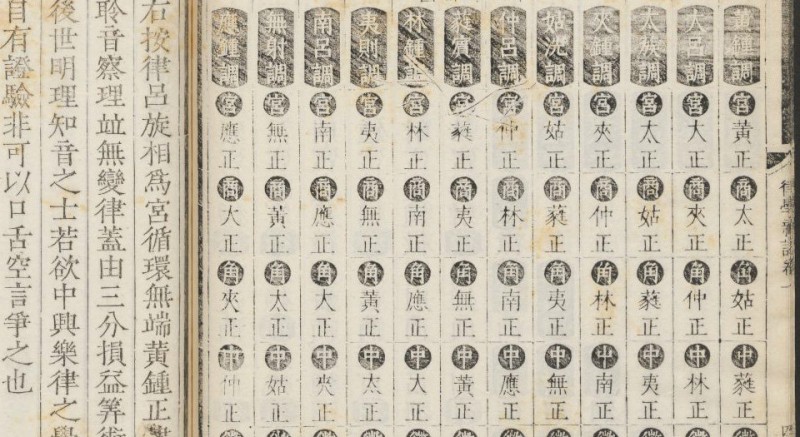 律學新說卷一
黃鍾調宮黃正商太正角姑正中蕤正
大呂調宮大正商夾正角仲正中林正
太族調宮太正商姑正角蕤正中夷正
夾鍾調宮夾正商仲正角林正中南正
姑洗調宮姑正商蕤正角夷正中無正
仲呂調宮仲正商林正角南正中應正
蕤賓調宮蕤正商夷正角無正中黃正
林鍾調宮林正商南正角應正中大正
夷則調宮夷正商無正角黃正中太正
南呂調宮南正商應正角大正中夾正
無射調宮無正商黃正角太正中姑正
應鍾調宮應正商大正角夾正中仲正
右按律呂旋相爲宮循環無端黃鍾正
聆音察理竝無變律蓋由三分損益筭術
後世明理知音之士若欲中興樂律之學
自有證驗非可以口舌空言爭之也